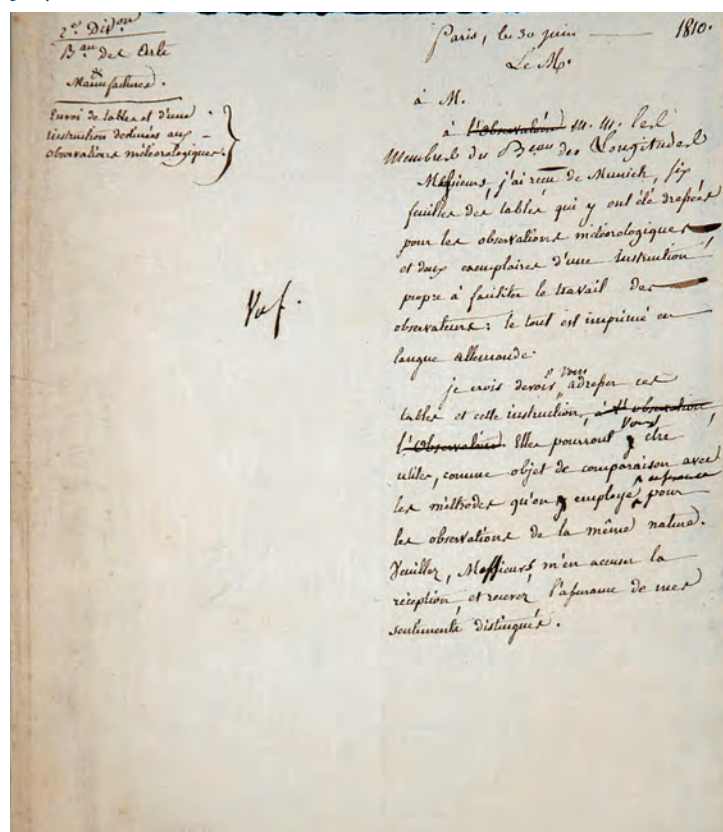 2.e Div.on
B.au des Arts
& Manufactures.
Envoi de tables et d'une
instruction destinées aux
observations météorologiques.
Paris, le 30 juin 1810.
Le M.
à M.
à l'Observatoire M. M. les
Membres du B.eau des Longitudes
Messieurs, j'ai reçu de Munich, six
feuilles des tables qui y ont été dressées
pour les observations météorologiques
et deux exemplaires d'une instruction
propre à faciliter le travail des
observateurs: le tout est imprimé en
langue allemande.
je crois devoir vous adresser ces
tables et cette instruction, à l'observatoire
l'Observatoire. Elles pourront vous être
utiles, comme objet de comparaison avec
les méthodes qu'on y employe pour
les observations de la même nature.
Veuillez, Messieurs, m'en accuser la
réception, et recevez l'assurance de mes
sentiments distingués.